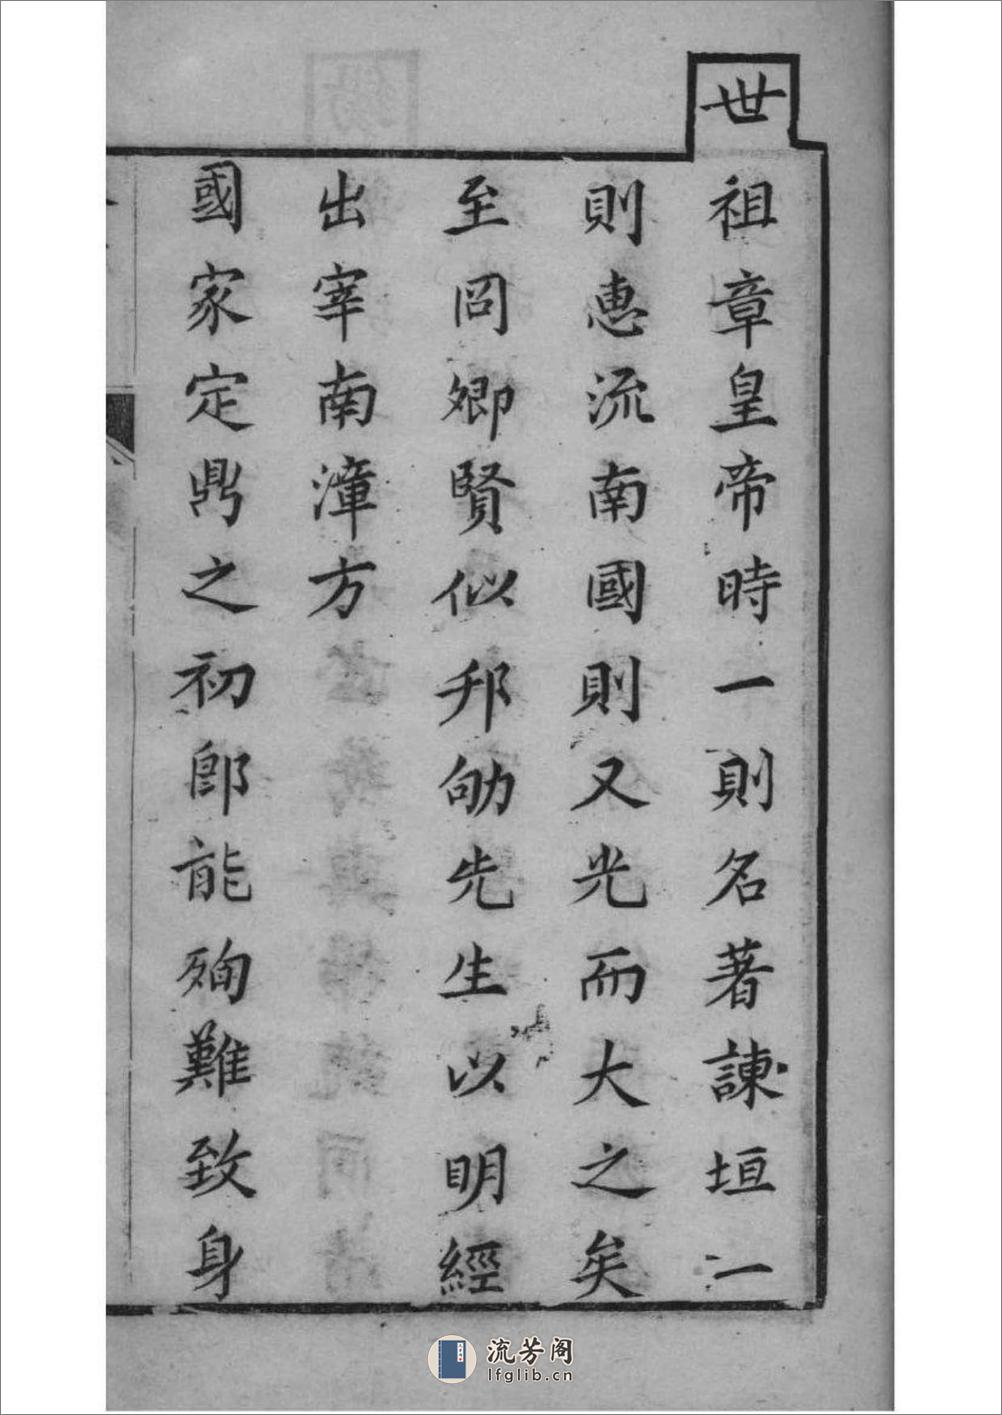 世祖章皇帝時一則名著諫垣一
則惠流南國則又光而大之矣
至冏卿賢似邦劬先生以明經
出宰南漳方
國家定鼎之初即能殉難致身
流芳阁
lfglib.cn